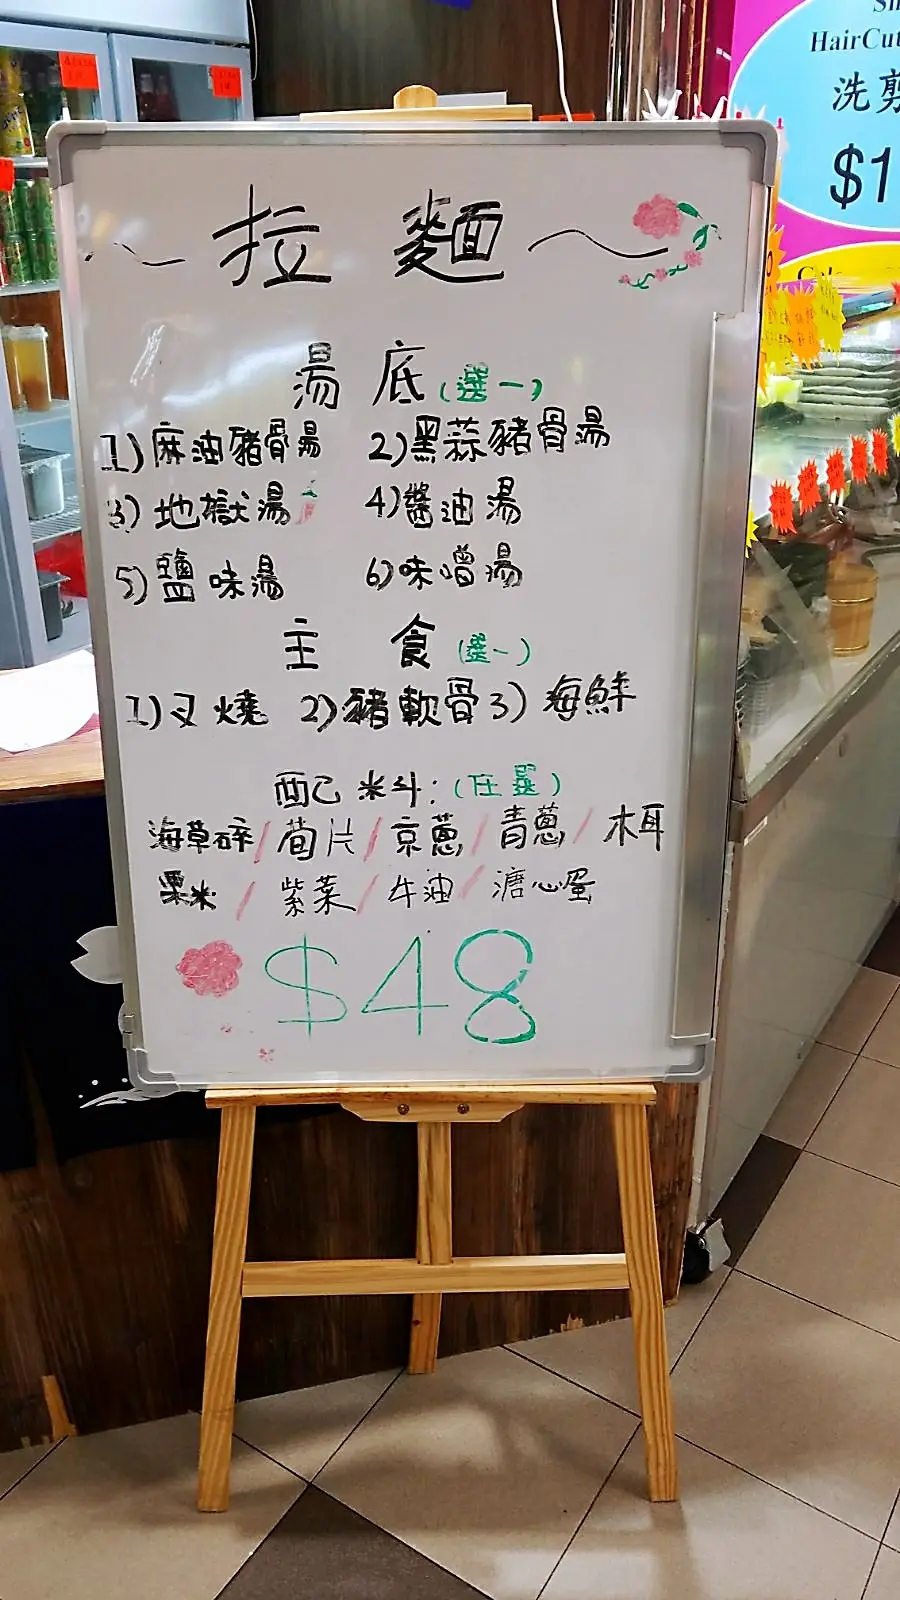 ~ 拉麵 ~
湯底(選一)
1)麻油豬骨湯 2)黑蒜豬骨湯
3)地獄湯 4)醬油湯
5)鹽味湯 6)味噌湯
主食(選一)
1)叉燒 2)豬軟骨 3)海鮮
配料:(任選)
海草碎/筍片/京蔥/青蔥/木耳
粟米/紫菜/牛油/溏心蛋
$48
HairCut
洗剪
$1